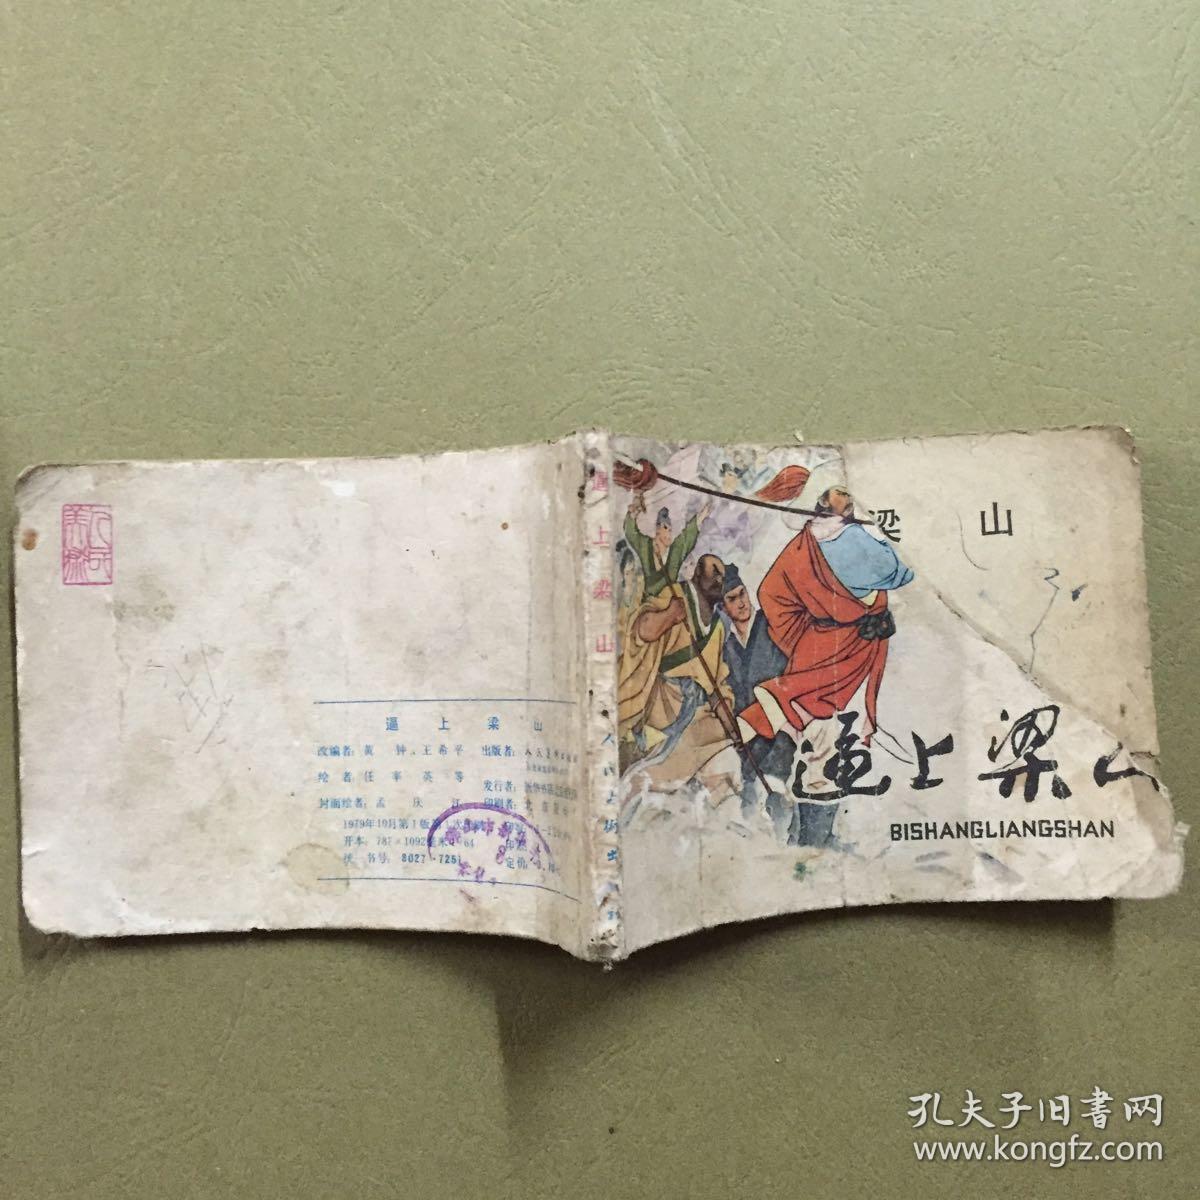 逼上梁山
改编者：黄 钟、王希平
绘 者：任率英等
封面绘者：孟庆江
1979年10月第1版第1次
开本：787×1092 64
统一书号：8027·7251
出版者：人民美术出版社
发行者：
印刷者：北京
定价：
逼上梁山
人民美术出
梁 山
逼上梁山
BISHANGLIANGSHAN
孔夫子旧书网
www.kongfz.com